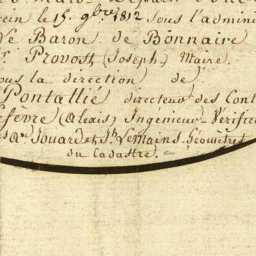 le 15. 9bre 1812 sous l'admini
Baron de Bonnaire
Provost (Joseph) Maire.
ous la direction de
Pontallié directeur des Cont
efèvre (Alexis) Ingenieur-Verifi
Jouard et Lemains Géomètres
du Cadastre.